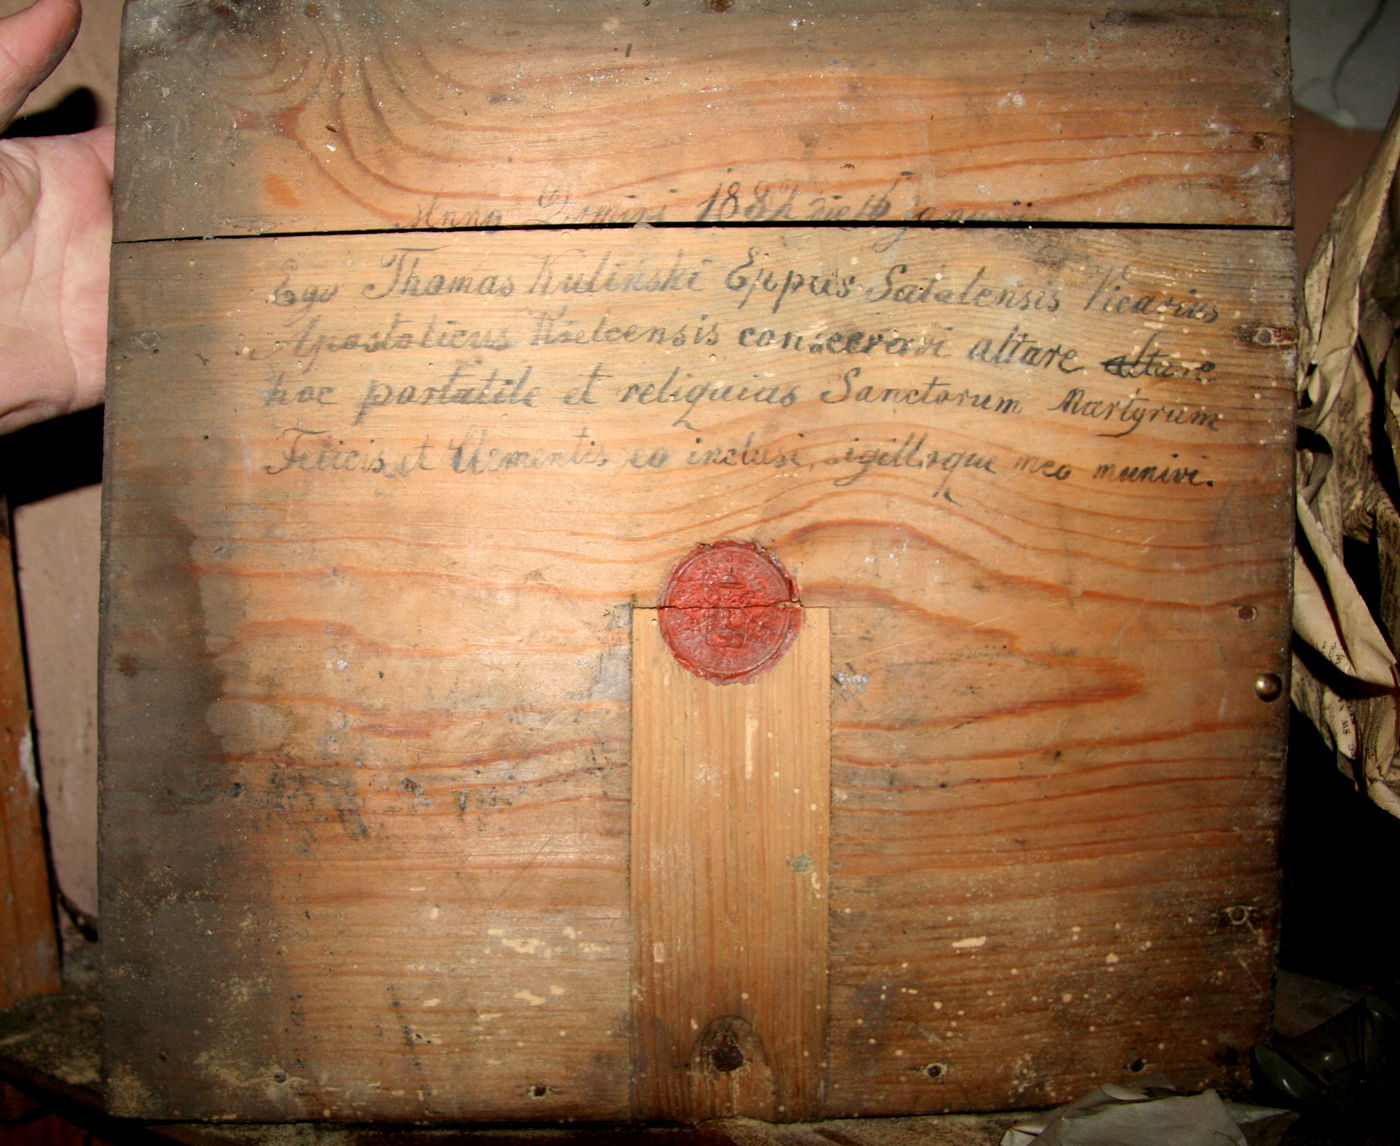 Anno Domini 1882 die 16 Januarii
Ego Thomas Kuliński Eppus Satalensis Vicarius
Apostolicus Kielcensis consecravi altare altare
hoc portatile et reliquias Sanctorum Martyrum
Felicis et Clementis eo inclusi, sigilloque meo munivi.